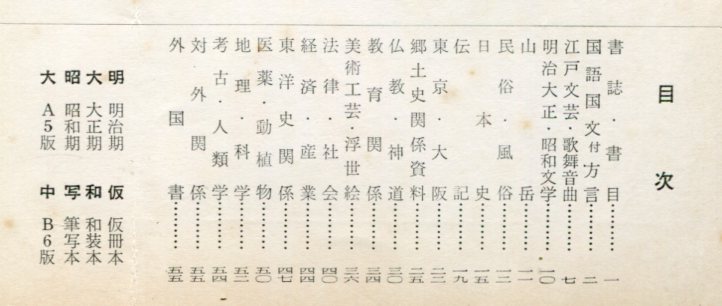 目次
書誌・書目………一
国語国文付方言………二
江戸文芸・歌舞音曲………七
明治大正・昭和文学………一〇
山岳………一一
民俗・風俗………一三
日本史………一五
伝記………一九
東京・大阪………二三
郷土史関係資料………二五
仏教・神道………三〇
教育関係………三四
美術工芸・浮世絵………三六
法律・社会………四〇
経済・産業………四四
東洋史関係………四七
医薬・動植物………五〇
地理・科学………五二
考古・人類学………五四
対外関係………五五
外国書………五五
明 明治期 仮 仮冊本
大 大正期 和 和装本
昭 昭和期 写 筆写本
大 A5版 中 B6版